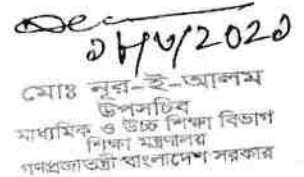 ১৮/৩/2021
মোঃ নূর-ই-আলম
উপসচিব
মাধ্যমিক ও উচ্চ শিক্ষা বিভাগ
শিক্ষা মন্ত্রণালয়
গণপ্রজাতন্ত্রী বাংলাদেশ সরকার